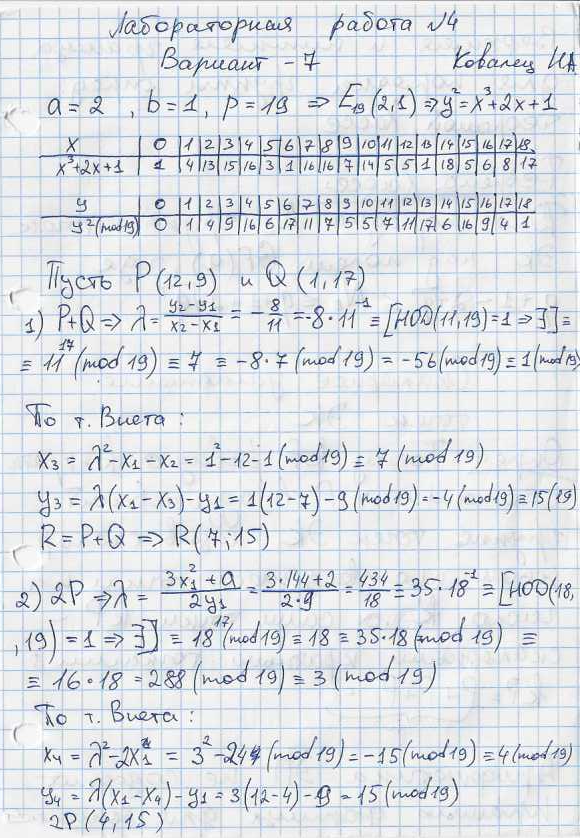 Лабораторная работа №4
Вариант - 7 Ковалец НА
a = 2 , b = 1 , p = 19 ⇒ E₁₉(2,1) ⇒ y² = x³ + 2x + 1
x 0 1 2 3 4 5 6 7 8 9 10 11 12 13 14 15 16 17 18
x³+2x+1 1 4 13 15 16 3 1 16 16 7 14 5 5 1 18 5 6 8 17
y 0 1 2 3 4 5 6 7 8 9 10 11 12 13 14 15 16 17 18
y² (mod 19) 0 1 4 9 16 6 17 11 7 5 5 7 11 17 6 16 9 4 1
Пусть P(12,9) и Q(1,17)
1) P+Q ⇒ λ = (y₂-y₁)/(x₂-x₁) = -8/11 = -8·11⁻¹ ≡ [НОД(11,19)=1 ⇒ ∃] ≡
≡ 11¹⁷ (mod 19) ≡ 7 ≡ -8·7 (mod 19) = -56 (mod 19) ≡ 1 (mod 19)
По т. Виета :
x₃ = λ² - x₁ - x₂ = 1² - 12 - 1 (mod 19) ≡ 7 (mod 19)
y₃ = λ(x₁ - x₃) - y₁ = 1(12-7) - 9 (mod 19) = -4 (mod 19) ≡ 15 (19)
R = P+Q ⇒ R(7;15)
2) 2P ⇒ λ = (3x₁² + a)/(2y₁) = (3·144+2)/(2·9) = 434/18 = 35·18⁻¹ ≡ [НОД(18,
,19) = 1 ⇒ ∃] ≡ 18¹⁷ (mod 19) ≡ 18 ≡ 35·18 (mod 19) ≡
≡ 16·18 = 288 (mod 19) ≡ 3 (mod 19)
По т. Виета :
x₄ = λ² - 2x₁ = 3² - 24 (mod 19) = -15 (mod 19) ≡ 4 (mod 19)
y₄ = λ(x₁ - x₄) - y₁ = 3(12-4) - 9 = 15 (mod 19)
2P (4,15)